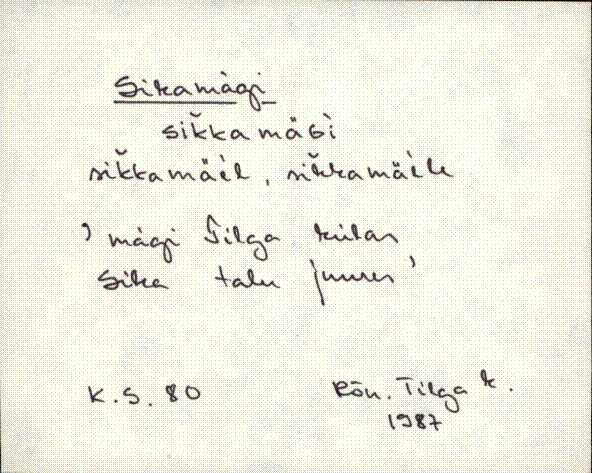 Sikamägi
sik̆kamäGì
sik̆kamäèl, sik̆kamäèle
' mägi Tilga külas
Sika talu juures '
K.S. 80
Rõu. Tilga k.
1987